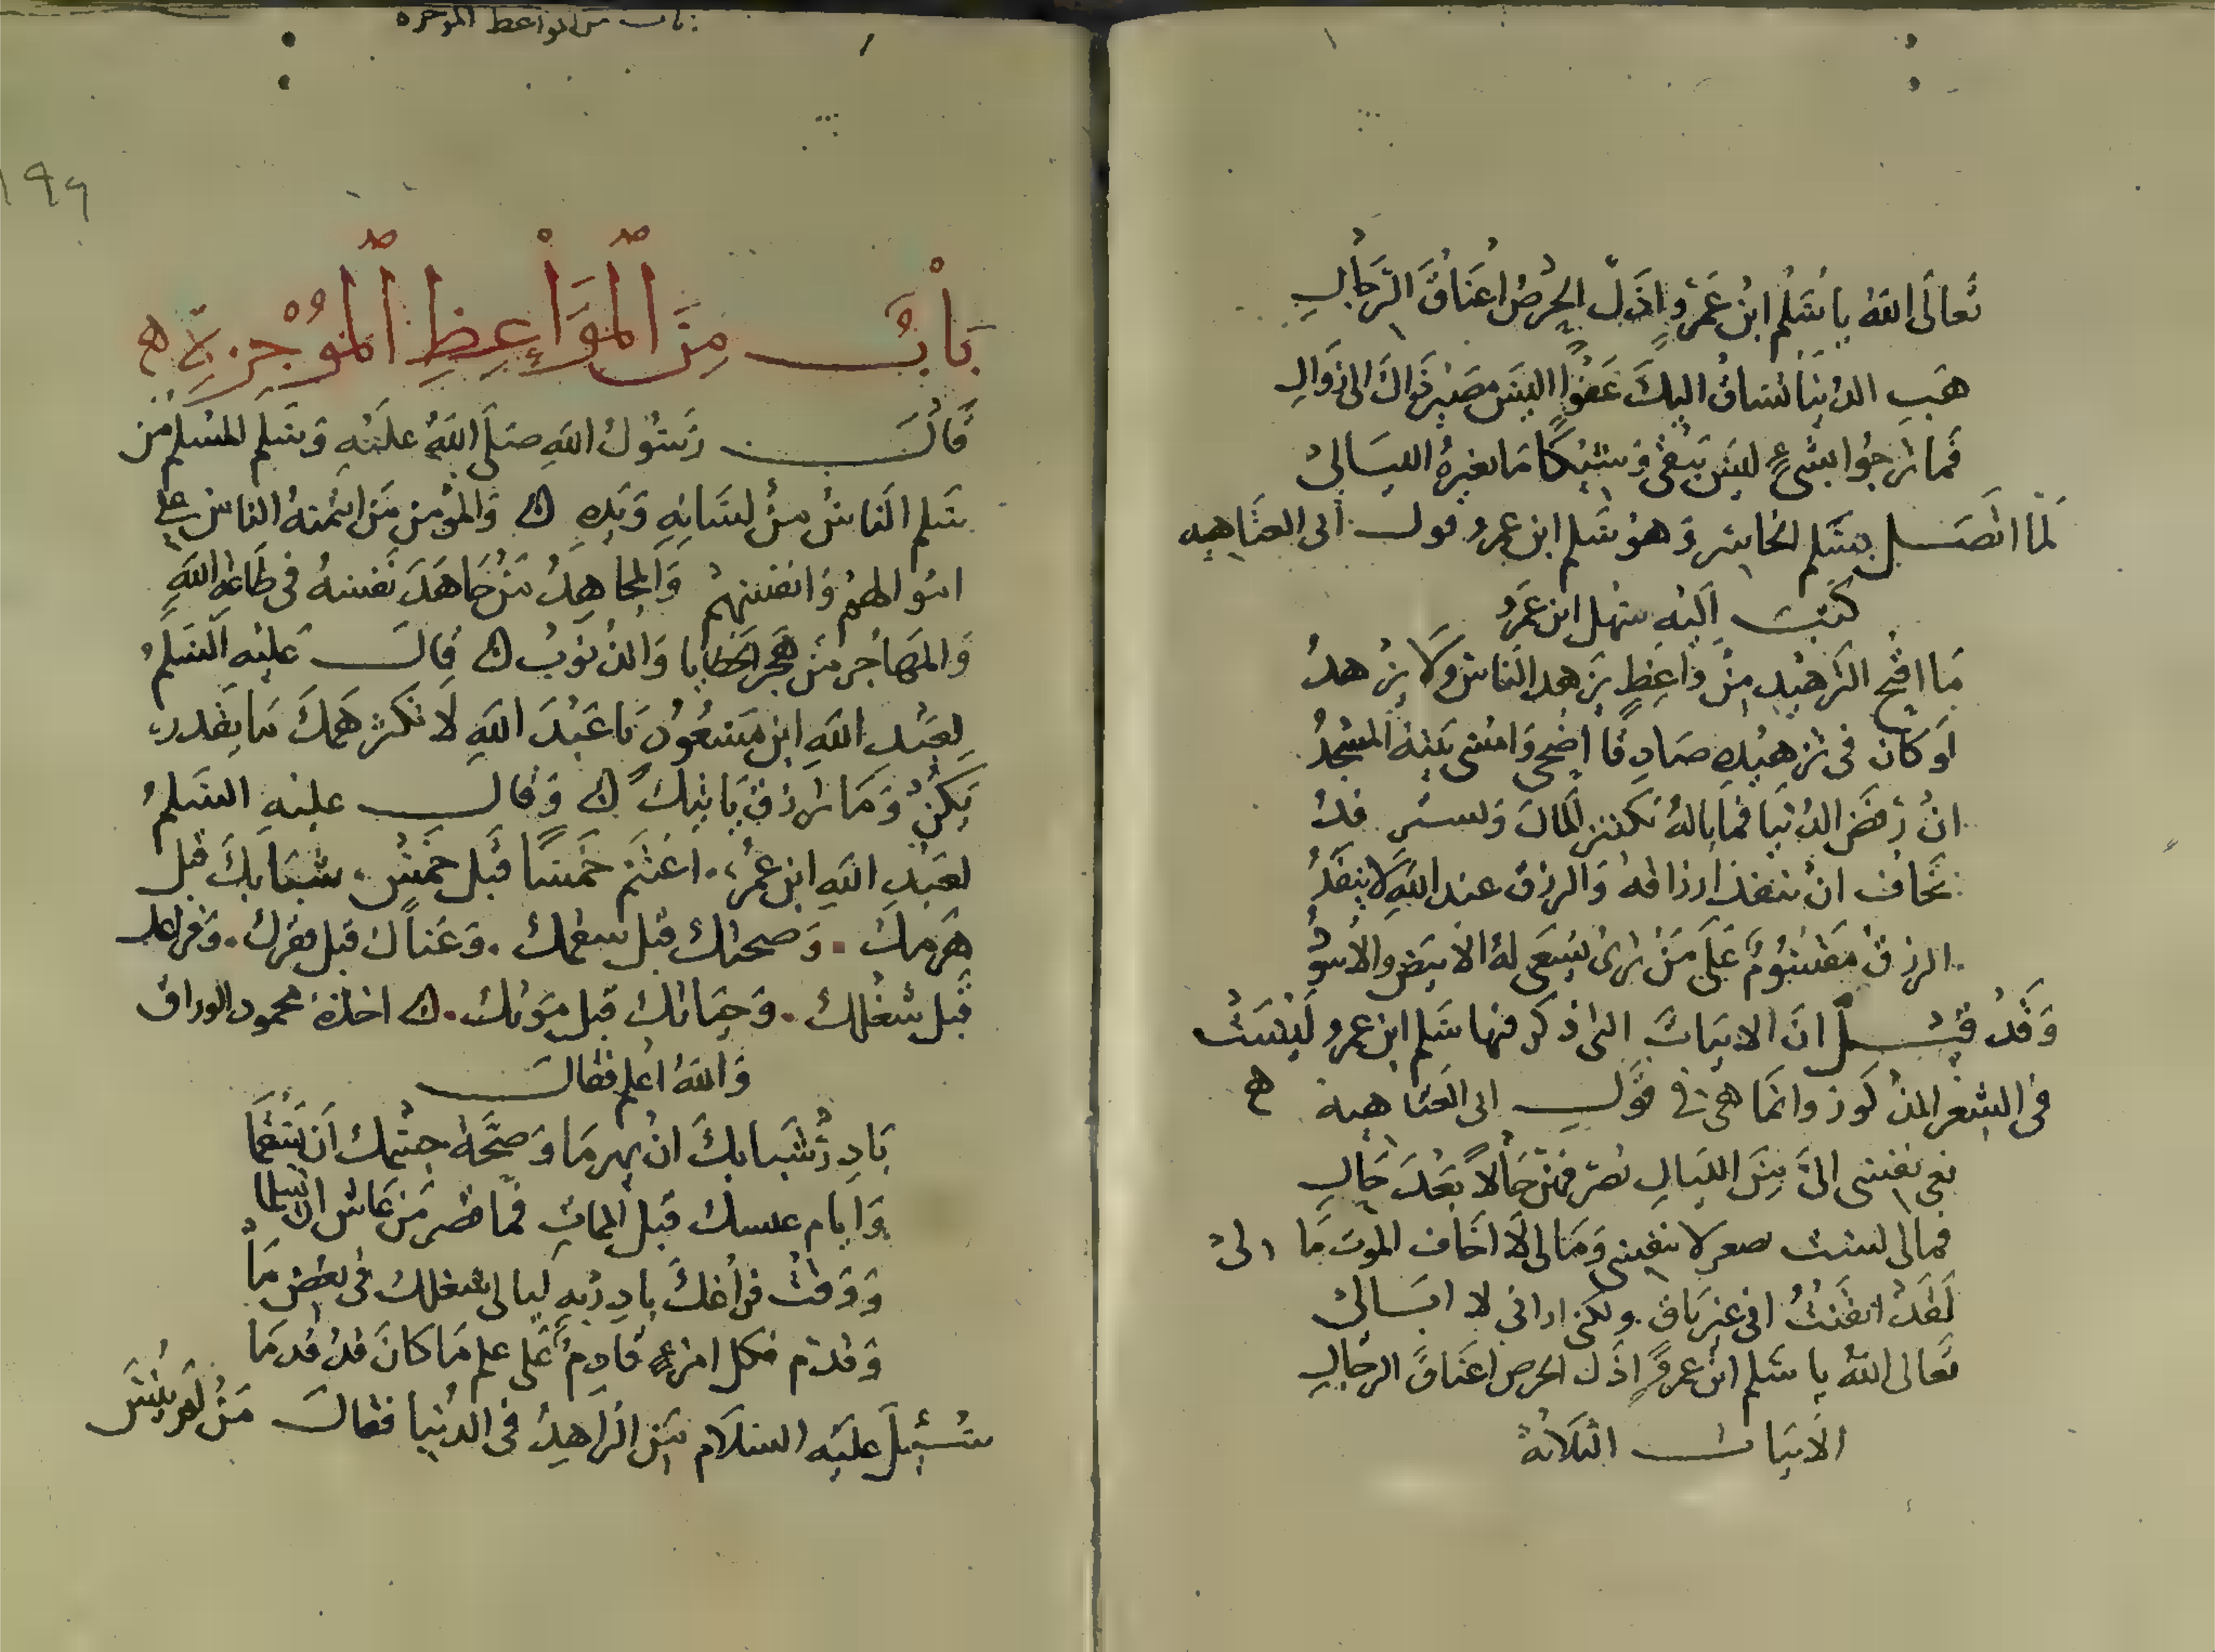 تَعالَى اللهُ يا سَلْمُ ابْنَ عَمْرٍو اذَلَّ الحِرْصُ اعْنَاقَ الرِّجَالِ
هَبِ الدُنْيَا تُسَاقُ اليكَ عَفْوًا اليسَ مصَيْرُ ذَاكَ الى زَوَالِ
فما ترجُوا بشىءٍ ليسَ يَبْقى وَشيْكًا مَا تغيرهُ الليَالىْ
لمَا اتصَل بسَلم الخاسر وَهوُ سَلم ابن عمرو قول ابى العتَاهيه
كتبَ اليْه سَهل ابن عَمرو
مَا اقبح التزهيْدِ مِنْ وَاعِظٍ يزَهد الناسَ وَلَا يزْهدُ
لوَ كان فى تزهيْدِه صَادِقًا اضْحى وَامسْى بَيْتهُ المسْجدُ
انْ رَفضَ الدُنيَا فمَا بالهُ يَكنز المالَ وَلستر فدْ
يَخاف انْ تنفذ ارزاقهُ وَالرزق عند اللهِ لا ينفَدُ
الرزقُ مَقسُومٌ عَلَى مَنْ تَرىْ يَسْعَى لهُ الابيَض والاسْودُ
وَقَدْ قيْل انَ الابيَاتَ التى ذكر فيها سَلم ابن عمرو لَيْسَتْ
فى الشِعْر المذْكور وانمَا هى فى قوَل ابى العَتاهية ه
نعى نفسْى الىَّ مِنَ الليَالِى تصَرّفهنّ حَالًا بَعْدَ حَالِ
فمالى لستُ مَالى لَا اخَاف الموتَ مَا لىْ
لَقَدْ ايقَنْتُ انى غير بَاقٍ ولكنى ارانى لا ابَالىْ
تَعالى اللهُ يا سَلم ابْن عمروٍ اذَل الحرص اعنَاقَ الرجَالِ
الابيَات الثلَاثة
باب من المواعظ الموجزه
١٩٦
بَاْبُ مِنَ اْلمَوَاْعِظِ اْلمُوْجَزِةِ ه
قَالَ رَسُولُ اللهِ صَلَى اللهُ عليْهِ وَسَلم المسْلم مَن
سَلم الناسُ مِنْ لسَانِهِ وَيَدِهِ وَالموْمن مَن ائمنهُ الناسَ على
امْوالهمْ وَانفسهمْ وَالمجاهِدُ مَنْ جَاهَدَ نفسهُ فى طَاعة اللهِ
وَالمهَاجُر مَن هَجر الخطايا وَالذنوَبُ قَالَ عَليْهِ السَلمُ
لِعَبْدِ اللهِ ابن مَسْعُودْ يَا عَبْدَ اللهِ لَا تكثر هَمكَ مَا يقَدر
يَكنْ وَمَا ترزق يَاتيكَ وَقال عليْهِ السَلمُ
لعَبْدِ اللهِ ابن عمرُ اغتنم خمسًا قبْل خَمْسْ شبَابكَ قبْل
هَرَمِكَ وَصحتكْ قبْل سقمكْ وَغناكْ قبل فقركْ وَفراغك
قبْل شغْلكْ وَحيَاتكْ قبل موَتكْ اخذهُ محمود الوراق
وَاللهُ اعْلم فقالَ
بَادِرْ شَبَابكَ انْ يهرمَا وَصحَّة جسْمكَ اَن يَسْقمَا
وَايام عيشك قبْل الممَاتِ فمَا قصر مَن عَاش ان يَسْلما
وَوَقتْ فراْغكَ بادِرْ بهِ ليالى شغلكْ فى بعْض مَا
وَقدْم فكل امرءٍ قادِمٌ عَلى علم مَا كانَ قدْ قُدمَا
سُئِلَ عليَه السلَام مَن الزَاهِدُ فى الدُنيا فقالَ مَنْ لم ينْسَ